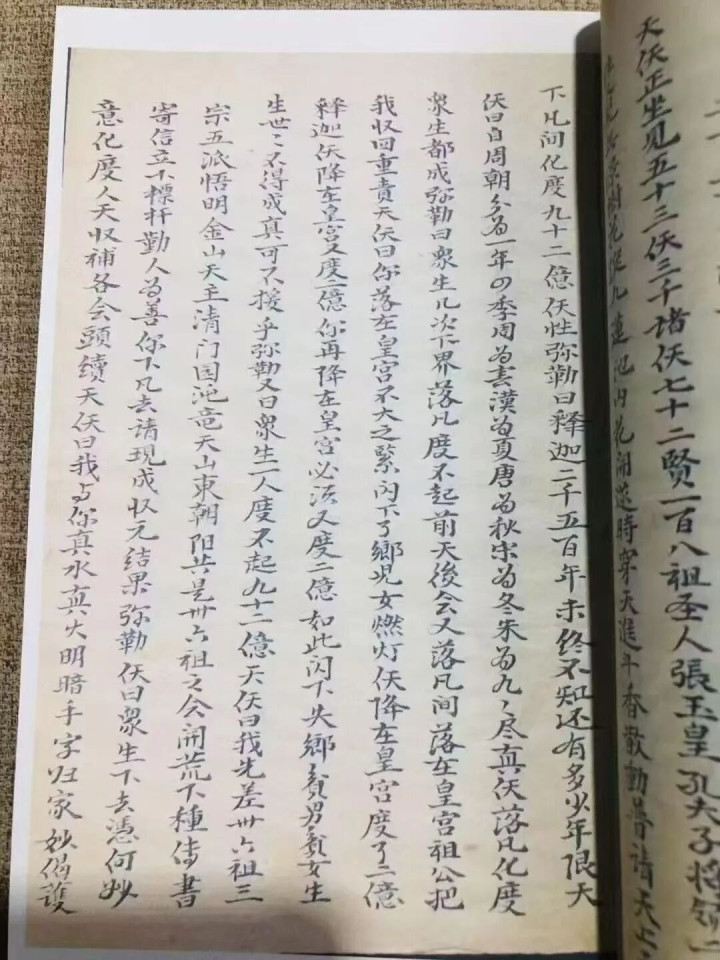 天仸正坐见五十三仸三千诸仸七十二贤一百八祖圣人張玉皇孔夫子将领
樹花從九蓮池内花開蓮時穿天進午香散勤普请天上
下凡间化度九十二億仸性弥勒曰釋迦二千五百年未终不知还有多少年限天
仸曰自周朝分为一年四季周为春漢为夏唐为秋宋为冬朱为九〻尽真仸落凡化度
衆生都成弥勒曰衆生几次下界落凡度不起前天後会又落凡间落在皇宫祖公把
我収回重责天仸曰你落在皇宫不大之緊闪下了鄉児女燃灯仸降在皇宫度了二億
釋迦仸降在皇宫又度二億你再降在皇宫必须又度二億如此闪下失鄉貧男貧女生
生世〻不得成真可不接乎弥勒又曰衆生一人度不起九十二億天仸曰我先差卅六祖三
宗五派悟明金山天主清门园沌竜天山東朝阳共是卅六祖之会開荒下種传書
寄信立下標杆勤人为善你下凡去请現成収元结果弥勒仸曰衆生下去憑何妙
意化度人天収補各会頭續天仸曰我与你真水真火明暗手字归家妙偈護